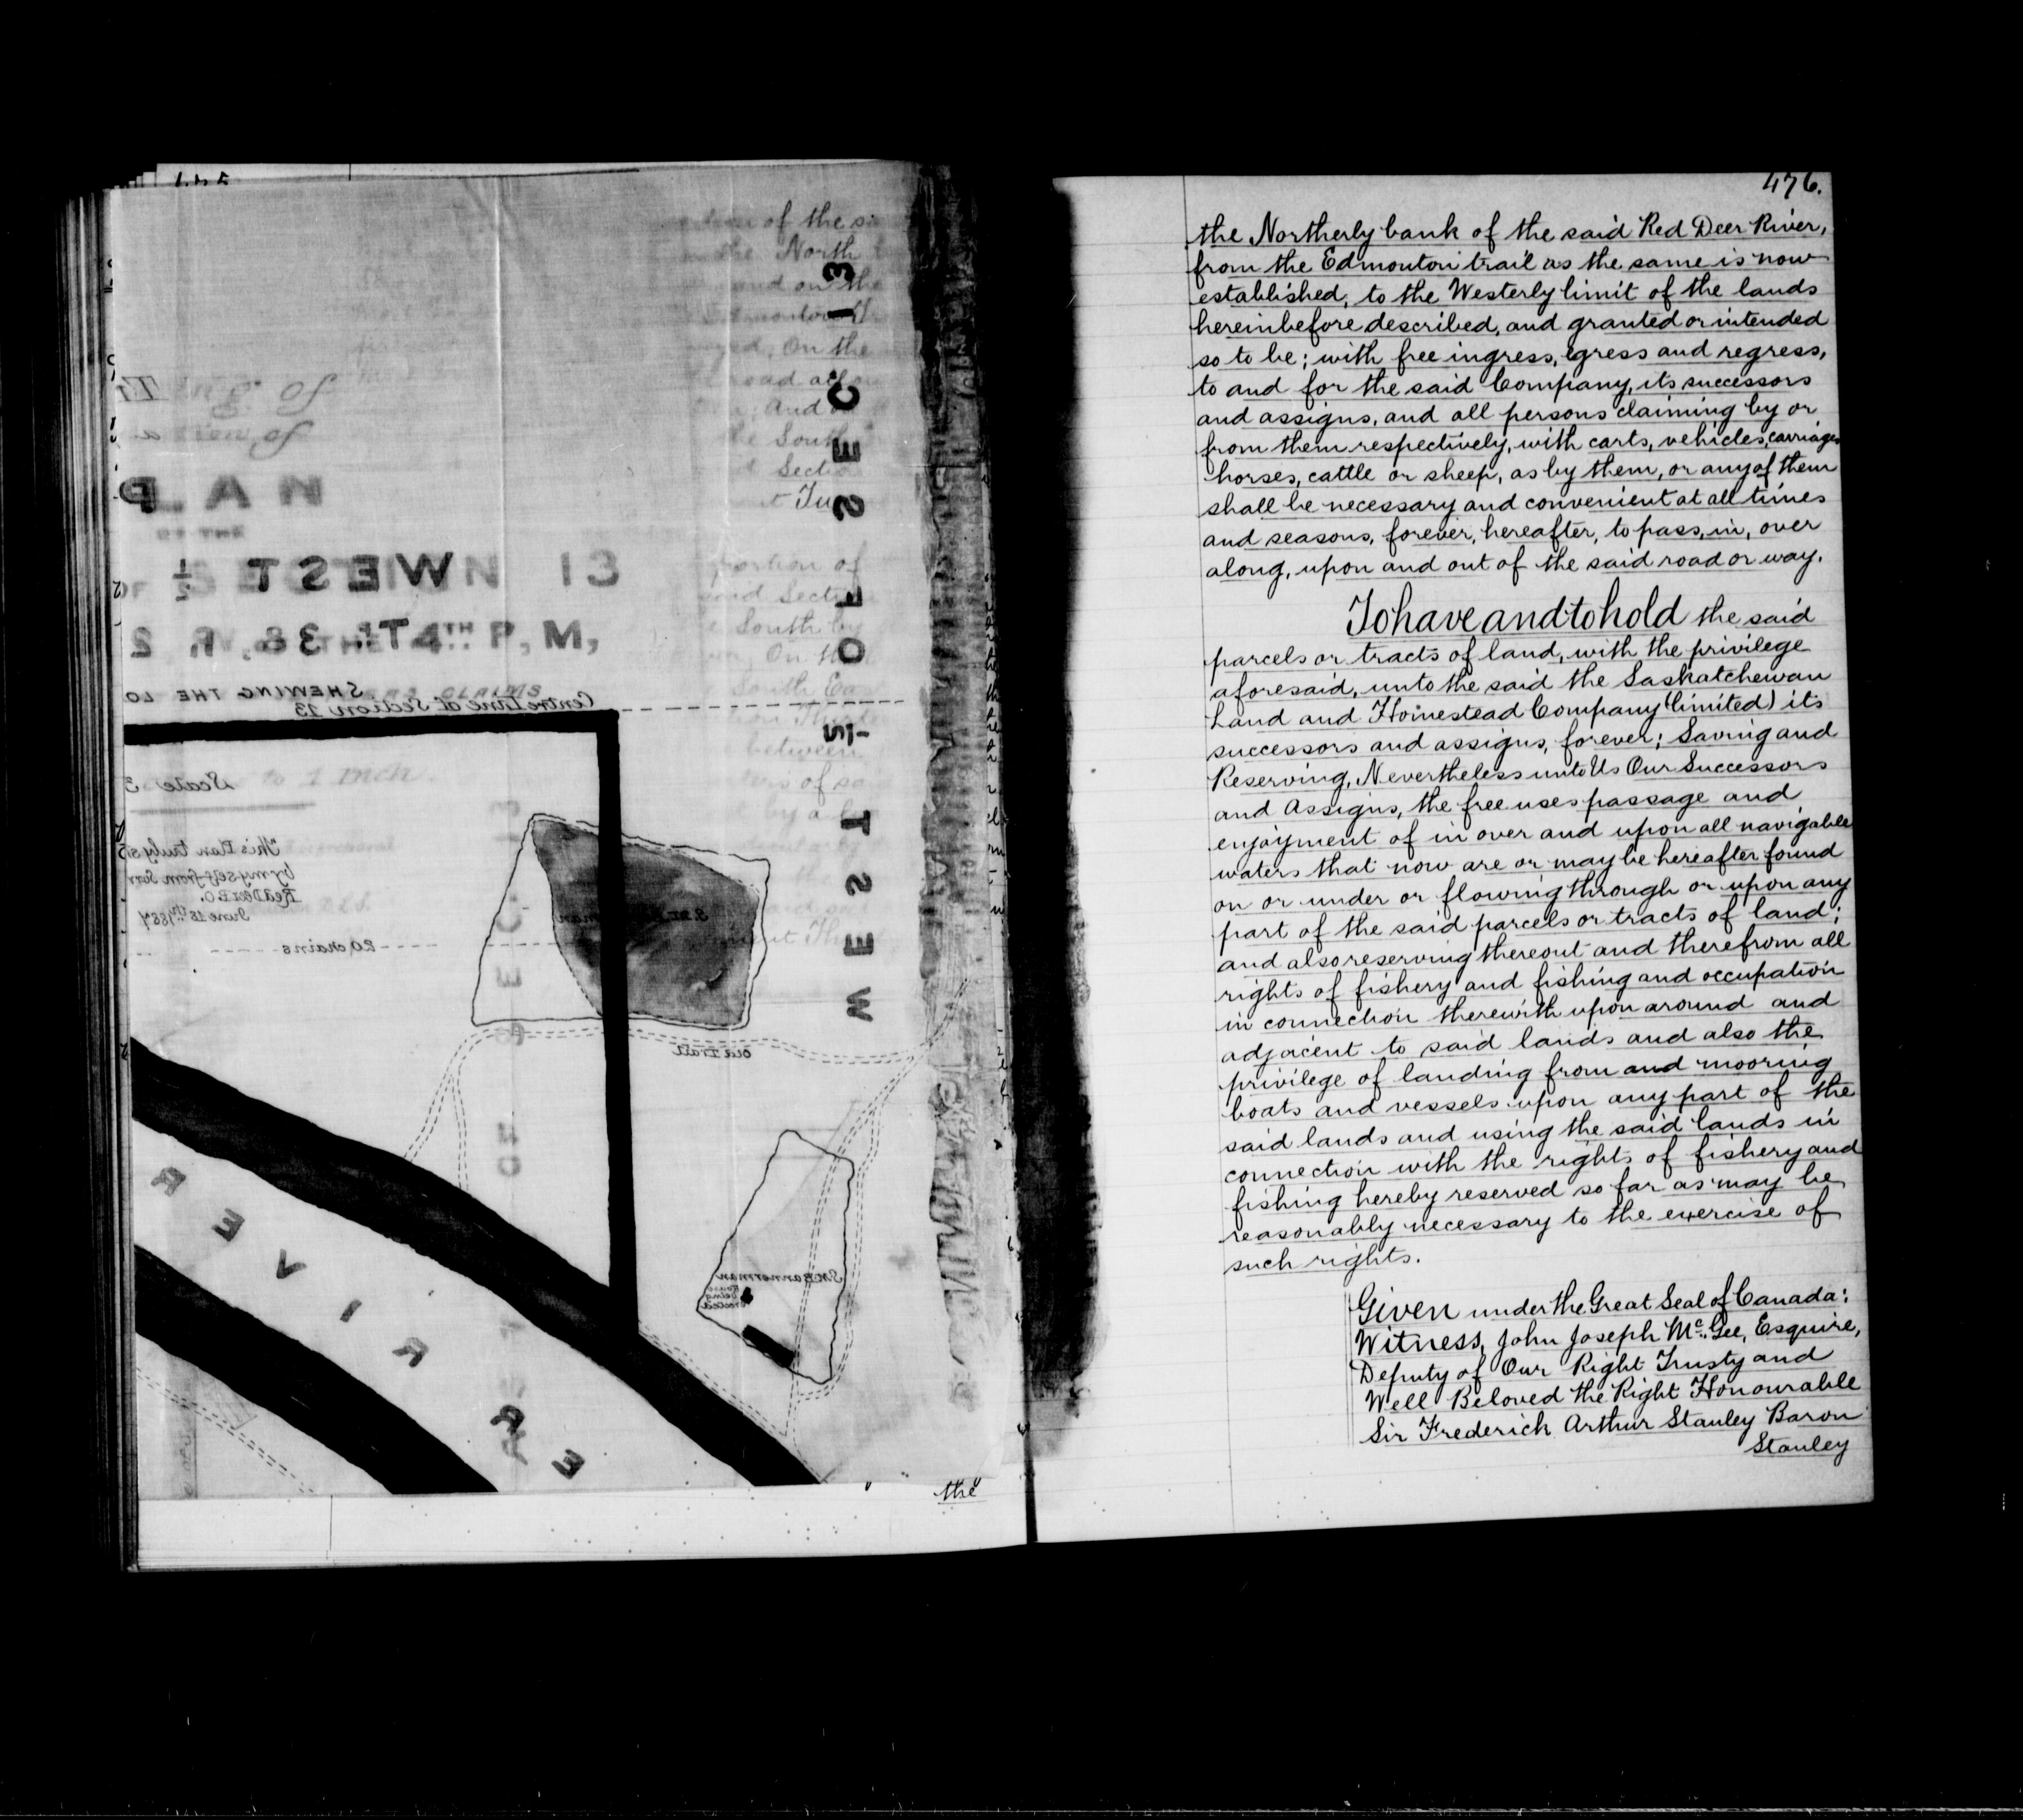 PLAN
WEST ½
13
4TH P, M,
SHEWING THE LO
CLAIMS
Centre Line of Section 13
Scale
to 1 inch.
This Plan truly
by myself from
Red Deer
June 18th 1887
20 chains
Old Trail
Bannerman
House
being
erected
RIVER
WEST ½ OF SEC 13
the
476.
the Northerly bank of the said Red Deer River,
from the Edmonton trail as the same is now
established, to the Westerly limit of the lands
hereinbefore described, and granted or intended
so to be; with free ingress, egress and regress,
to and for the said Company, its successors
and assigns, and all persons claiming by or
from them respectively, with carts, vehicles, carriages
horses, cattle or sheep, as by them, or any of them
shall be necessary and convenient at all times
and seasons, forever, hereafter, to pass, in, over
along, upon and out of the said road or way.
To have and to hold the said
parcels or tracts of land, with the privilege
aforesaid, unto the said the Saskatchewan
Land and Homestead Company (limited) its
successors and assigns, forever; Saving and
Reserving, Nevertheless unto Us Our Successors
and Assigns, the free uses passage and
enjoyment of in over and upon all navigable
waters that now are or may be hereafter found
on or under or flowing through or upon any
part of the said parcels or tracts of land;
and also reserving thereout and therefrom all
rights of fishery and fishing and occupation
in connection therewith upon around and
adjacent to said lands and also the
privilege of landing from and mooring
boats and vessels upon any part of the
said lands and using the said lands in
connection with the rights of fishery and
fishing hereby reserved so far as may be
reasonably necessary to the exercise of
such rights.
Given under the Great Seal of Canada:
Witness, John Joseph Mc.Gee, Esquire,
Deputy of Our Right Trusty and
Well Beloved the Right Honourable
Sir Frederick Arthur Stanley Baron
Stanley